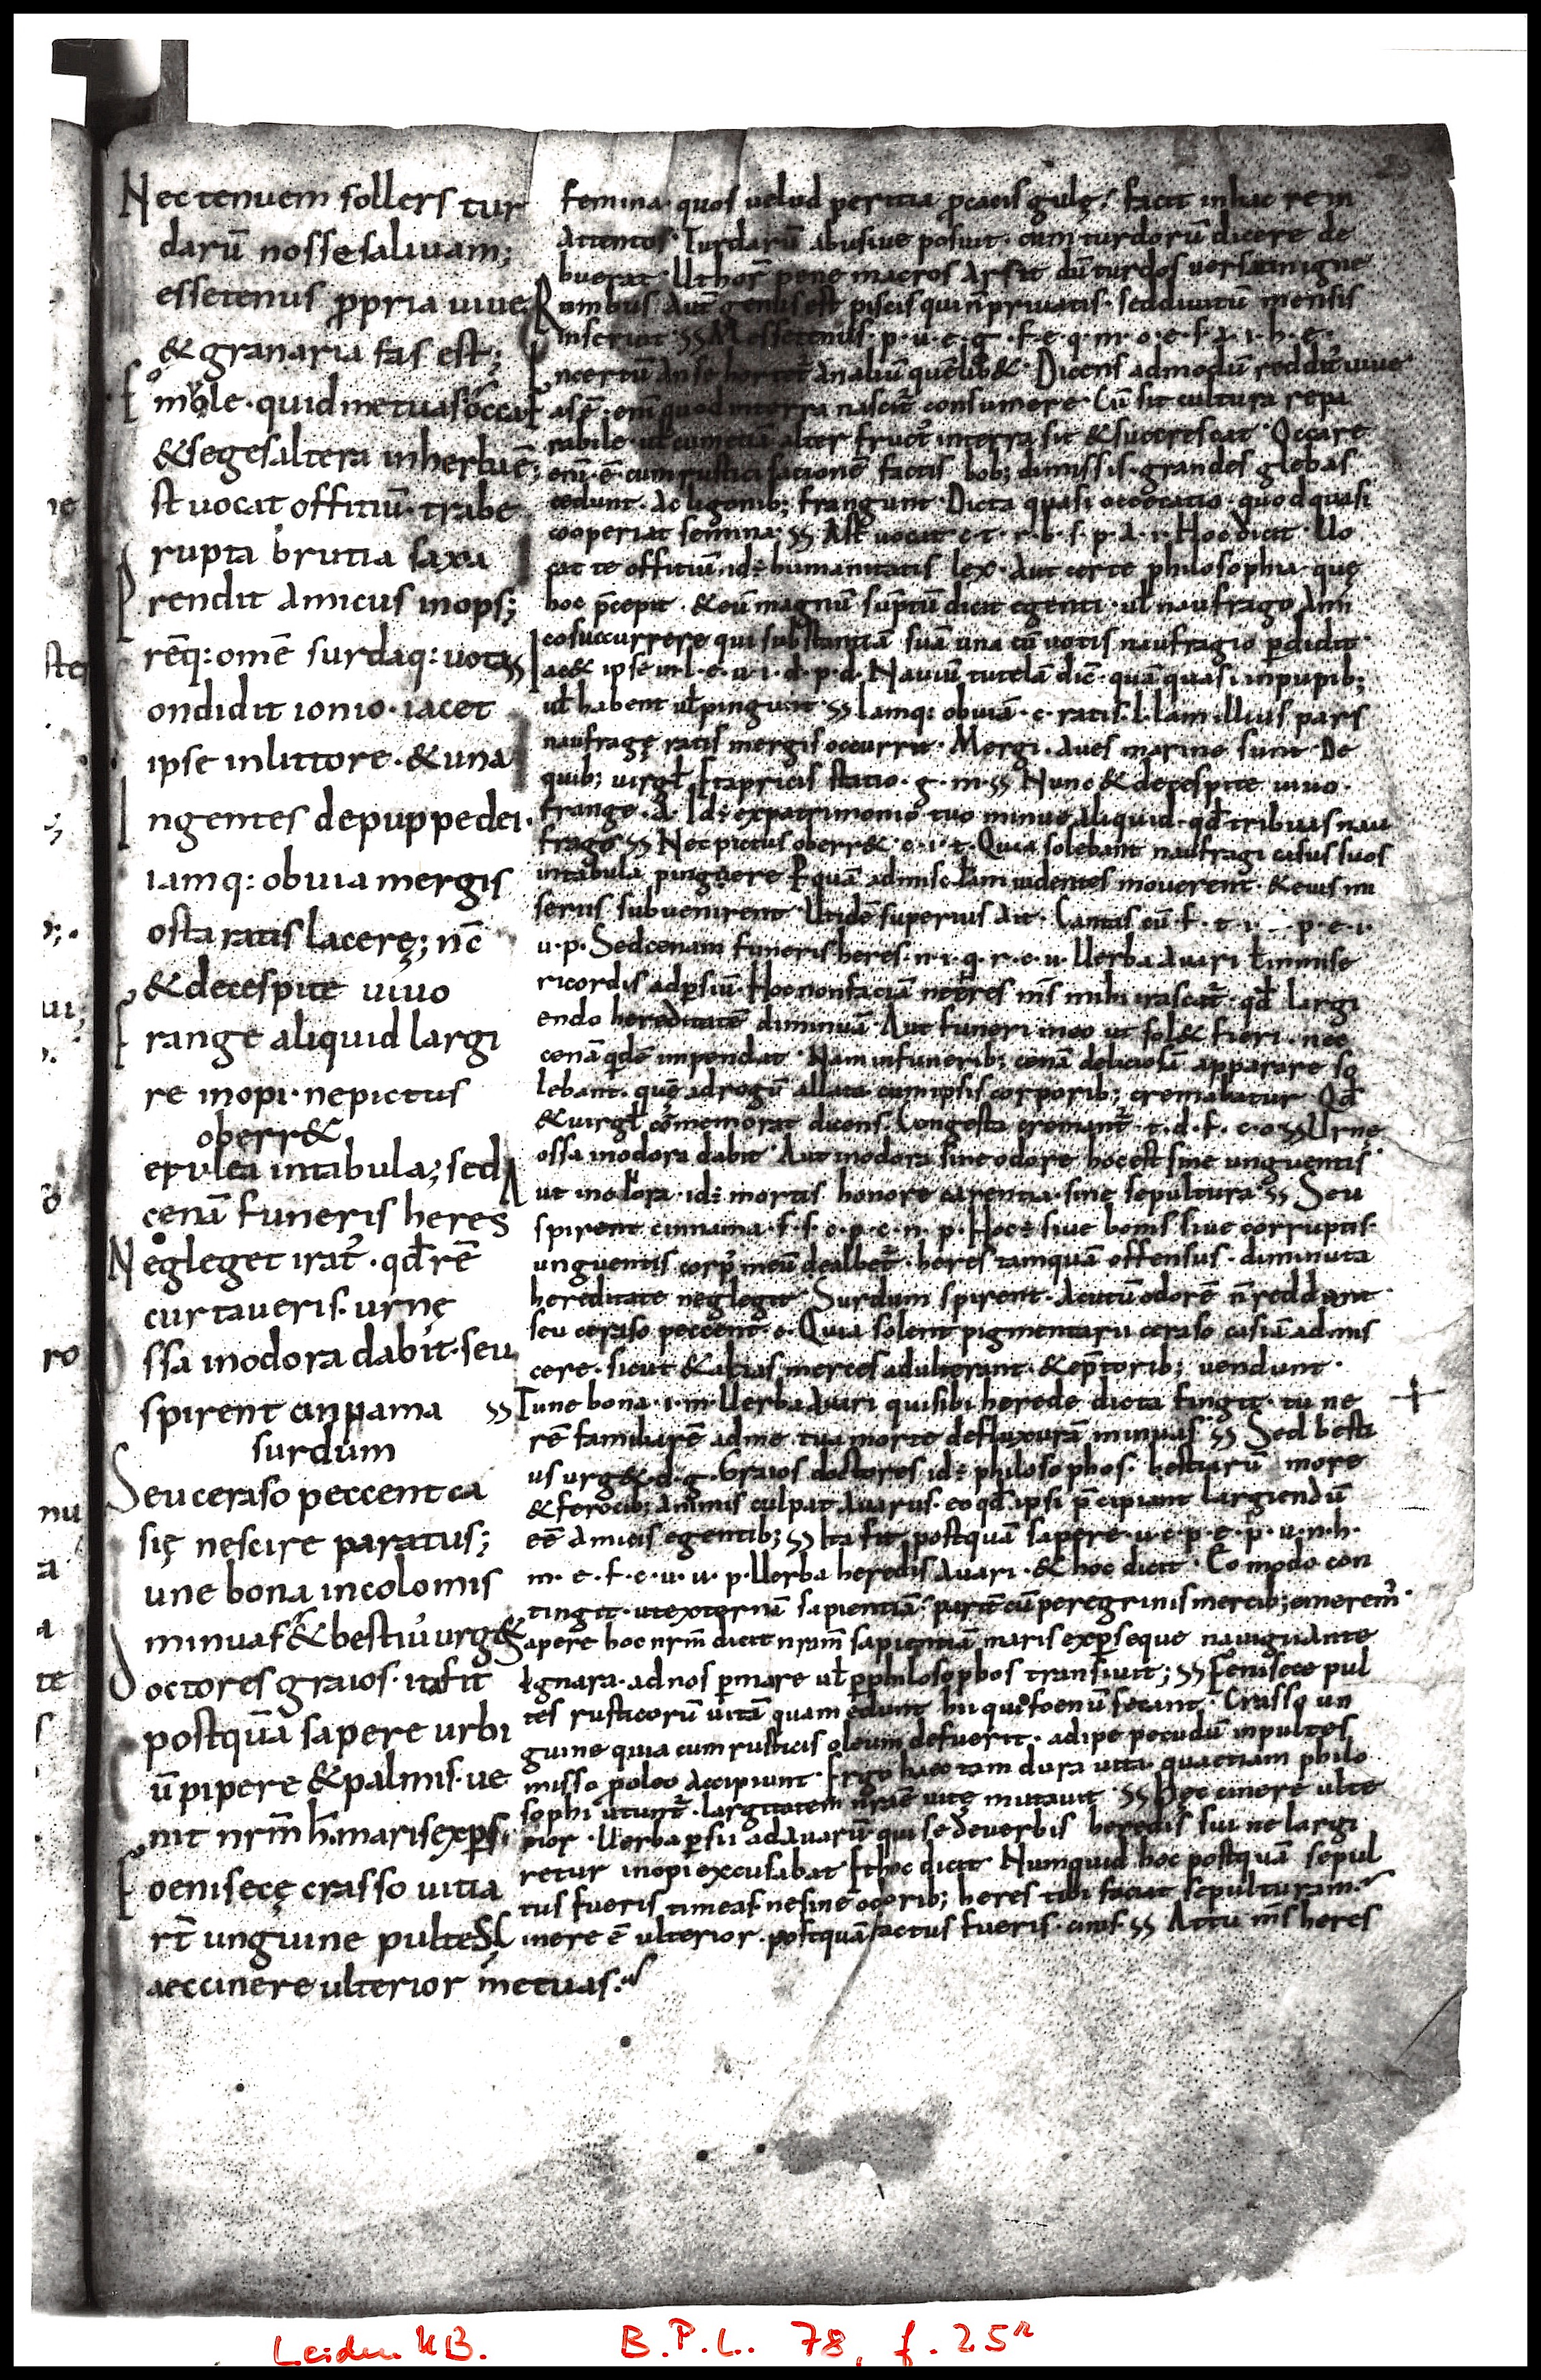 Nec tenuem sollers tur
darū nosse saliuam;
esse tenus ꝓpria uiue
& granaria fas est;
Emole · quid metuas occa
& seges altera in herba ē;
st uocat offitiū · trabe
rupta brutia saxa
Prendit amicus inops;
rēq: omē surdaq: uota
ondidit ionio · iacet
ipse in littore · & una
Ingentes de puppe dei ·
iamq: obuia mergis
osta ratis lacerę; nc̄
& de cespite uiuo
Frange aliquid largi
re inopi · ne pictus
oberr&
erulea in tabula; sed
cenā funeris heres
Negleget irat᷒ · qđ rē
curtaueris · urnę
Ossa inodora dabit · seu
spirent cinnama
surdum
Seu ceraso peccent ca
się nescire paratus;
une bona incolomis
minuas & bestiu᷒ urg&
Doctores graios · ita fit
postquā sapere urbi
ū pipere & palmis · ue
nit nr̄m h. maris expers
Foenisecę crasso uitia
rt̄ unguine pultes
aec cinere ulterior metuas.
femina · quos uelud peritia ꝓcacis gulę · facit in hac re in
attentos · Turdarū abusiue posuit · cum turdorū dicere de
buerat · Ut hor̄ pene macros arsit dū turdos uersat in igne
Rombus aut genus est piscis qui n̄ priuatis · sed diuitū mensis
inferint · Messe tenus · p · u · e · g · f · e · q · m · o · e · s · a · i · h · e ·
Incertū an se hortet᷒ an aliū quēlib& · Dicens admodū reddit᷒ uiue
asē · enī quod in terra nascit᷒ consumere · Cū sit cultura repa
rabile · ul̄ cum etiā alter fruct᷒ in terra sit & succrescat · Occare
enī · ē · cum rustici satione factis bob; dimissis · grandes glebas
cedunt · ac ligonib; frangunt · Dicta quasi occecatio · quod quasi
cooperiat semina · Ast uocat · c · t · r · b · s · p · a · i · Hoc dicit · Uo
cat te offitiū · id÷ humanitatis lex · Aut certe philosophia quę
hoc p̄cepit · & eū magnū sūptū dicit egenti · ul̄ naufrago ami
co succurrere qui substantiā suā una cū uotis naufragio ꝑdidit
ac& ipse in · l · e · u · i · d · p · d · Nauiū tutelā dic̄ · quā quasi in pupib;
ul̄ habent ul̄ pingunt · Iamq: obuia · c · ratis · l · Iam illius pars
naufragę ratis mergis occurrit · Mergi · aues marine sunt · De
quib; uirgl̄ Et apricis statio · g · m · Nunc & de cespite uiuo ·
frange · a · Id÷ ex patrimonio tuo minue aliquid · qđ tribuas nau
frago · Nec pictus oberr& · c · i · t · Quia solebant naufragi casus suos
in tabula pinguere · ꝑ quā ad miser̄iam uidentes mouerent · & eius mi
seriis subuenirent · Ut idē superius ait · Cantas cū f · t · i · p · e · i ·
u · p · Sed cenam funeris heres · n · i · q · r · c · u · Uerba auari t̄ inmise
ricordis ad persiū · Hoc non faciā ne heres m̄s mihi irascat᷒ · qđ largi
endo hereditatē diminuā · Aut funeri meo ut sol& fieri · nec
cenā qdē impendat · Nam in funerib; cenā deliciosā apparare so
lebant · quę ad rogū allata cum ipsis corporib; cremabatur · Qđ
& uirgl̄ cōmemorat dicens · Congesta cremant᷒ · t · d · f · c · o · Urne
ossa inodora dabit · Aut inodora sine odore hoc est sine unguentis
ut inodora · id÷ mortis honore carentia · sine sepultura · Seu
spirent cinnama · s · s · c · p · c · n · p · Hoc÷ siue bonis siue corruptis
unguentis corp᷒ meū dealbet᷒ · heres tamquā offensus · diminuta
hereditate neglegit · Surdum spirent · Acutū odorē n̄ reddant
seu ceraso peccent · c · Quia solent pigmentarii ceraso casiā admis
cere · sicut & alias merces adulterant · & ēptorib; uendunt ·
Tune bona · i · m · Uerba auari qui sibi herede dicta fingit · tu ne
rē familiarē ad me tua morte defluxurā minuas · Sed besti
us urg& · d · g · Graios doctores id÷ philosophos · bestiarū more
& ferocib; animis culpat auarus · eo qđ ipsi p̄cipiant largiendū
eē amicis egentib; Ita fit postquā sapere · u · c · p · e · p · u · n · h ·
m · e · f · c · u · u · p · Uerba heredis auari · & hoc dicit · Eo modo con
tingit · ut externā sapientiā · parit᷒ cū peregrinis mercib; emerem᷒ ·
Sapere hoc nr̄m dicit nr̄am sapientiā maris expers eque nauigante
Ignara · ad nos ꝑ mare ul̄ ꝑ philosophos transiuit; Fenisece pul
tes rusticorū uitā quam edunt hii qui foenū secant · Crasso un
guine quia cum rusticis oleum defuerit · adipe pecudū in pultes
misso poleo accipiunt · Ergo haec tam dura uita qua etiam philo
sophi utunt᷒ · largitatem nr̄aē uitę mutauit · Hec cinere ulte
rior · Uerba ꝑsii ad auarū qui se de uerbis heredis sui ne largi
retur inopi excusabat Et hoc dicit Numquid hoc postquā sepul
tus fueris timeas ne sine odorib; heres tibi faciat sepulturam ·
inere ē ulterior · postquā factus fueris · cinis · At tu m̄s heres
Leiden UB. B.P.L. 78, f. 25r